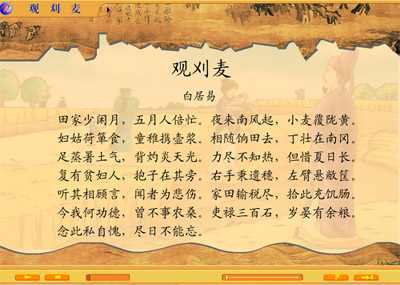 观刈麦
观刈麦
白居易
田家少闲月，五月人倍忙。夜来南风起，小麦覆陇黄。
妇姑荷箪食，童稚携壶浆。相随饷田去，丁壮在南冈。
足蒸暑土气，背灼炎天光。力尽不知热，但惜夏日长。
复有贫妇人，抱子在其旁。右手秉遗穗，左臂悬敝筐。
听其相顾言，闻者为悲伤。家田输税尽，拾此充饥肠。
今我何功德，曾不事农桑。吏禄三百石，岁晏有余粮。
念此私自愧，尽日不能忘。